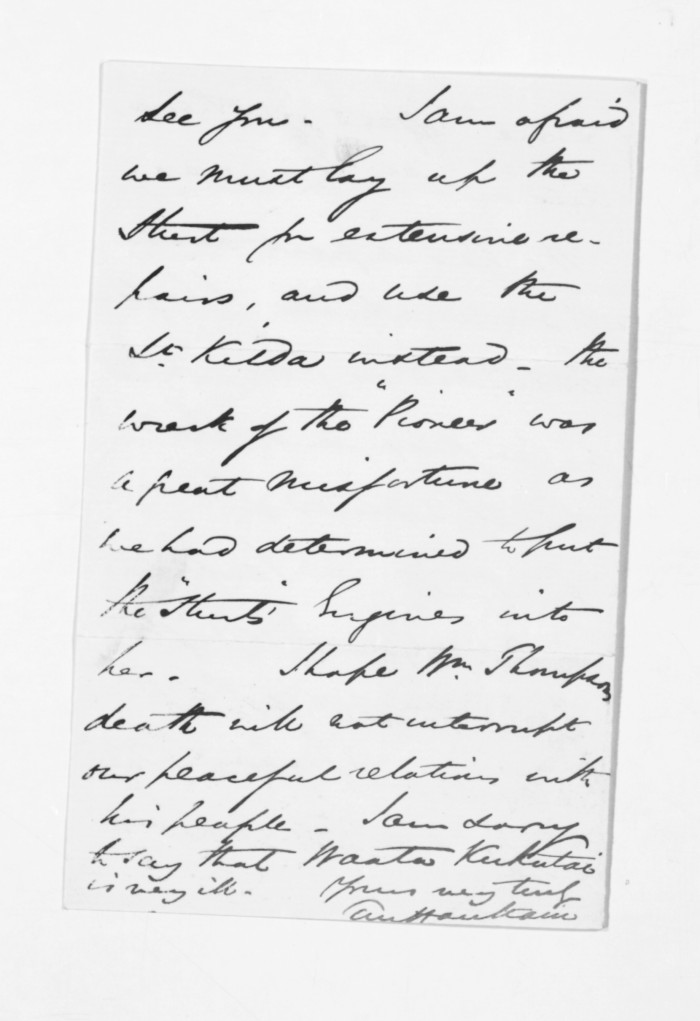 see you. I am afraid
we must lay up the
Sturt for extensive re-
pairs, and use the
St. Kilda instead - the
wreck of the "Pioneer" was
a great misfortune as
we had determined to put
the "Sturt's" Engines into
her. I hope Wm. Thompson
death will not interrupt
our peaceful relations with
his people - I am sorry
to say that Waata Kukutai
is very ill. Yours very truly